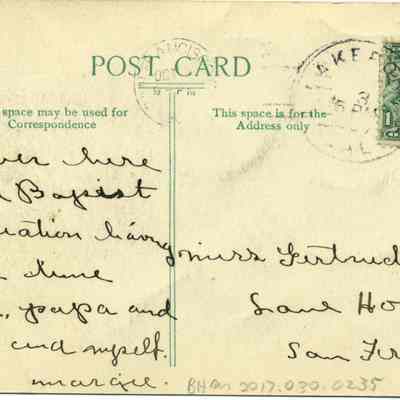 POST CARD
space may be used for
Correspondence
This space is for the
Address only
over here
Bapist
having
papa and
and myself.
margie.
miss Gertrud
Lane Ho
San Fr
BHM 2017.030.0235
LAKEP
1